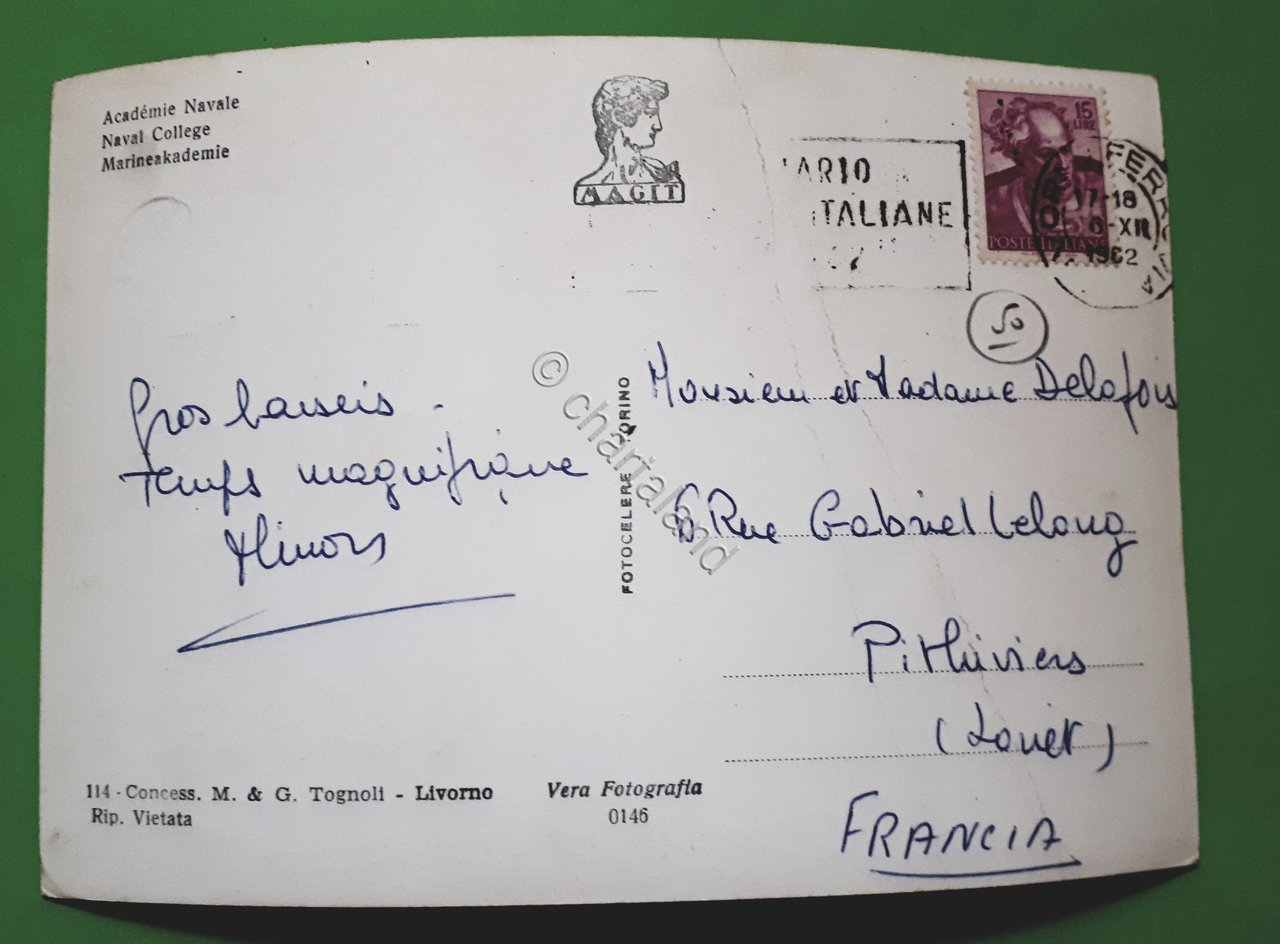 Académie Navale
Naval College
Marineakademie
MAGIT
ARIO
ITALIANE
15
LIRE
POSTE ITALIANE
FERROVIA
17-18
6-XII
1962
50
Gros baisers.
Temps magnifique
© chartaland
FOTOCELERE TORINO
Monsieur et Madame Delafois
6 Rue Gabriel Lelong
Pithiviers
(Loiret)
FRANCIA
114 - Concess. M. & G. Tognoli - Livorno
Rip. Vietata
Vera Fotografia
0146